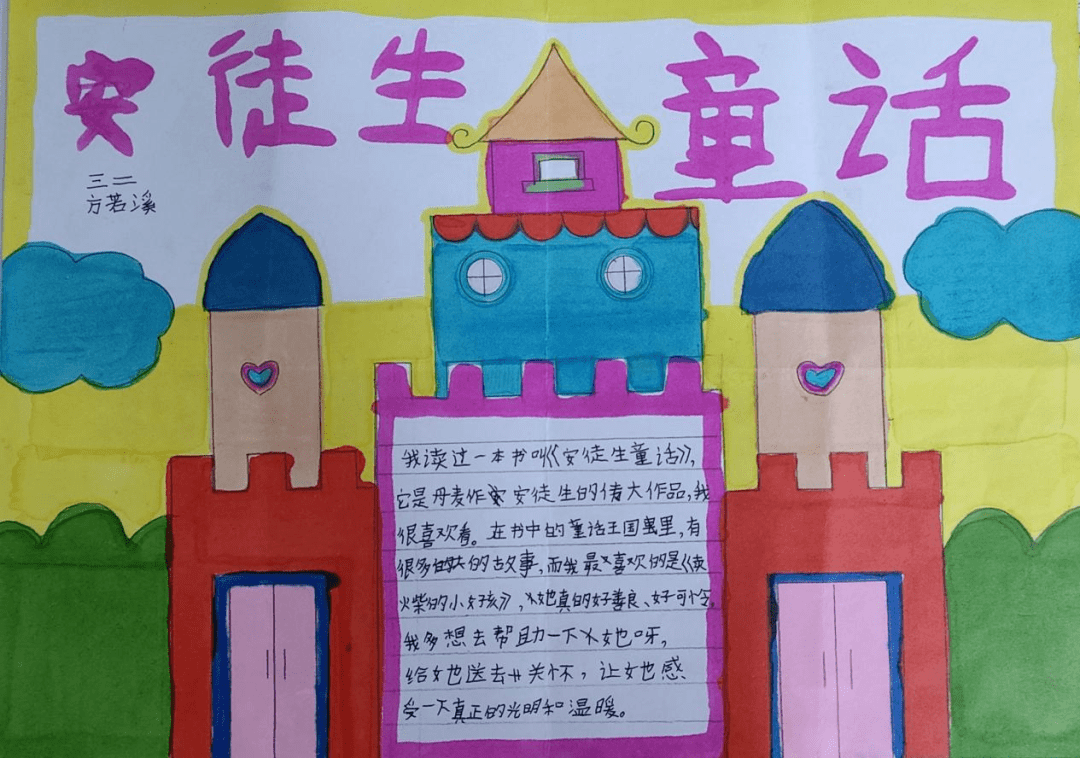 安徒生童话
三二
方若溪
我读过一本书叫《安徒生童话》,
它是丹麦作家安徒生的伟大作品,我
很喜欢看。在书中的童话王国里,有
很多的故事,而我最喜欢的是《卖
火柴的小女孩》,她真的好善良、好可怜,
我多想去帮助一下她呀,
给她送去关怀,让她感
受一下真正的光明和温暖。